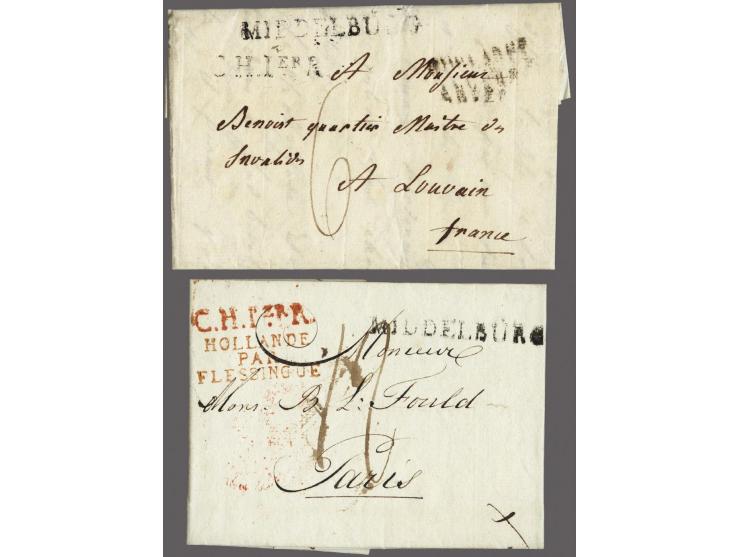 MIDDELBURG
C.H.1ERR.
HOLLANDE
A Monsieur
Benoist quartier Maitre des
Invalides
6
A Louvain
france
C.H.1ERR.
HOLLANDE
PAR
FLESSINGUE
MIDDELBURG
Monsieur
Mons. B L: Fould
Paris